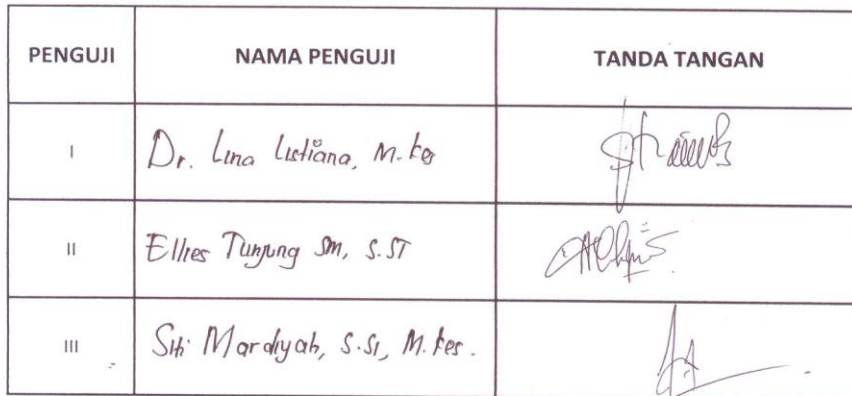 PENGUJI NAMA PENGUJI TANDA TANGAN
I Dr. Lina Listiana, M.kes
II Ellies Tunjung SM, S.ST
III Siti Mardiyah, S.Si, M.kes.